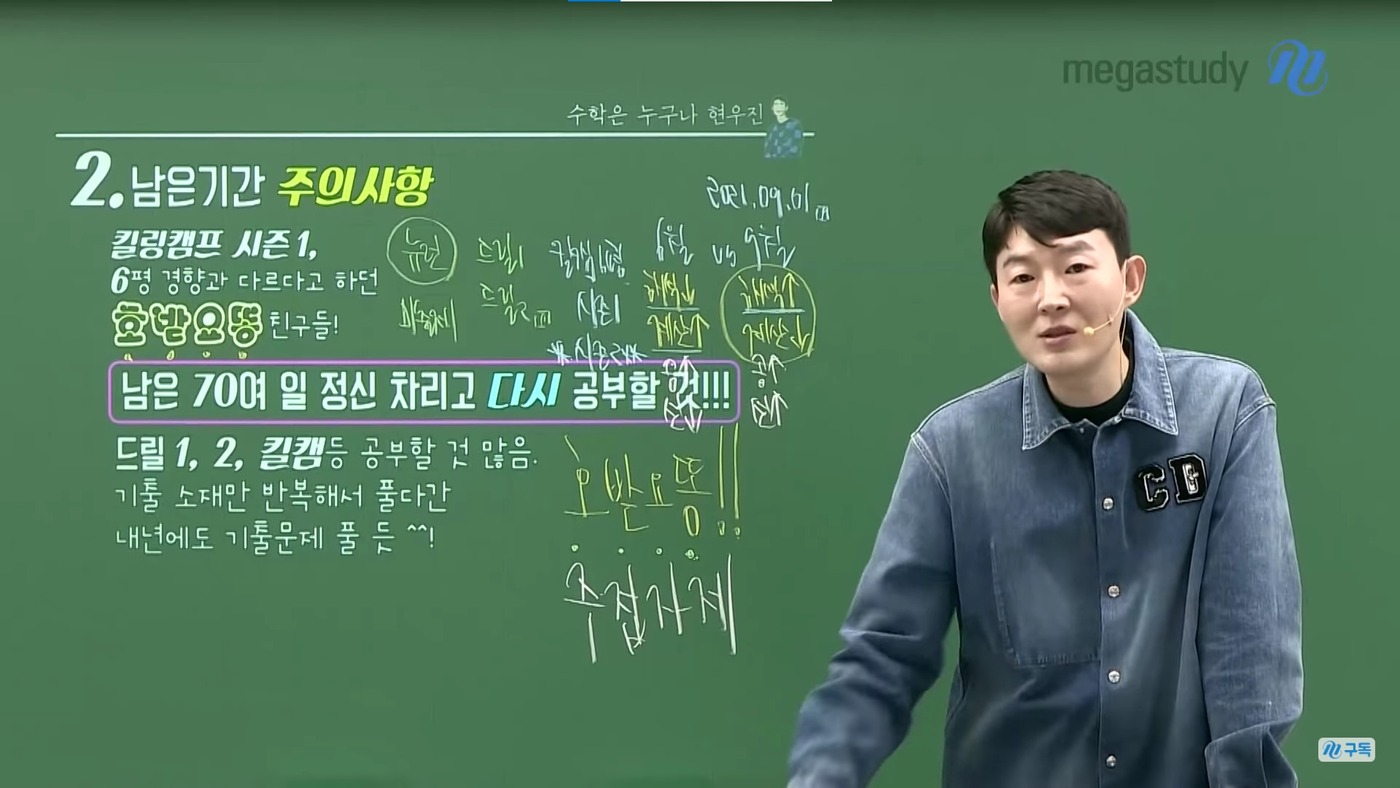 megastudy
수학은 누구나 현우진
2. 남은기간 주의사항
2021.09.01
킬링캠프 시즌 1,
6평 경향과 다르다고 하던
호발요뚱 친구들!
뉴런 드릴1 6월 vs 9월
드릴2
남은 70여 일 정신 차리고 다시 공부할 것!!!
드릴 1, 2, 킬캠등 공부할 것 많음.
기출 소재만 반복해서 풀다간
내년에도 기출문제 풀 듯 ^^!
호발요뚱!!
주접자제
구독